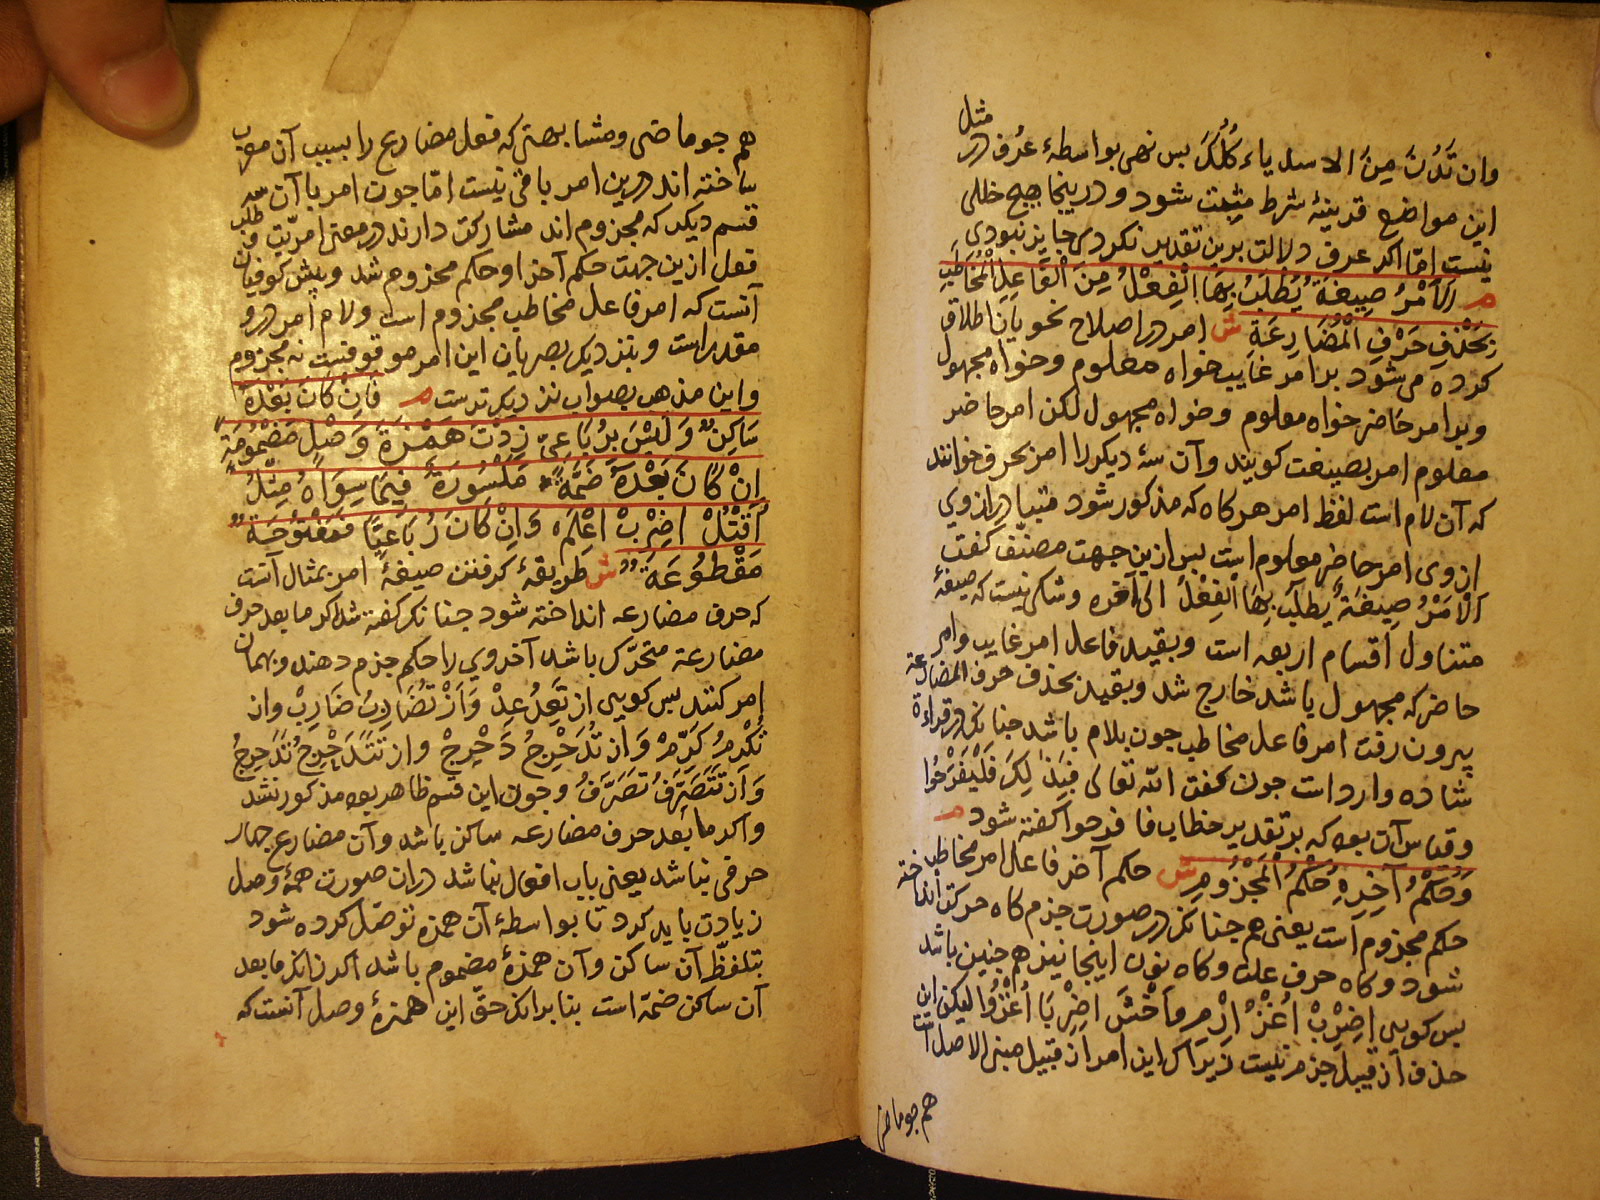 مثل
وان تَدْنُ مِنَ الاسد یاءکُلُکَ بس نهی بواسطهٔ عُرف در
این مواضع قرینهٔ شرط مثبت شود و درینجا هیچ خللی
نیست امّا اکر عرف دلالت برین تقدیر نکردی جایز نبودی
م الاَمْرُ صِیغَةٌ یُطْلَبُ بِهَا الْفِعْلُ مِنَ الْفَاعِلِ الْمُخَاطَبِ
بِحَذْفِ حَرْفِ الْمُضَارِعَةِ ش امر در اصلاح نحویان اطلاق
کرده می شود بر امر غایب خواه معلوم و خواه مجهول
و بر امر حاضر خواه معلوم و خواه مجهول لکن امر حاضر
معلوم امر بصیغت کویند و آن سهٔ دیکر را امر بحرف خوانند
که آن لام است لفظ امر هرکاه که مذکور شود متبادر از وی
از وی امر حاضر معلوم است بس ازین جهت مصنّف کفت
الْاَمْرُ صِیغَةٌ یطلَبُ بِهَا الْفِعْلُ الی آخره و شکی نیست که صیغهٔ
متناول اقسام اربعه است و بقید فاعل امر غایب و امر
حاضر که مجهول باشد خارج شد و بقید بحذف حرف المضارعة
بیرون رفت امر فاعل مخاطب جون بلام باشد جنانکه در قراءة
شاده وارد است جون کفت الله تعالی فَبِذَالِکَ فَلْیَفْرَحُوا
وقیاس آن بود که بر تقدیر خطاب فافرحوا کفته شود م
وَحُکْمُ آخِرِهِ حُکْمُ الْمَجْزُومِ ش حکم آخر فاعل امر مخاطب
حکم مجزوم است یعنی هم جنانکه در صورت جزم کاه حرکت انداخته
شود و کاه حرف علت و کاه نون اینجا نیز هم جنین باشد
بس کویی اِضْرِبْ اُغْزُ اِرْمِ وَاخْشَ اِضْرِبَا اُغْزُوا لیکن این
حذف از قبیل جزم نیست زیراک این امر از قبیل مبنی الاصل است
هم جو ماضی
هم جو ماضی و مشابهتی که فعل مضارع را بسبب آن معرب
ساخته اند درین امر باقی نیست امّا جون امر با آن سه
قسم دیکر که مجزوم اند مشارکت دارند در معنی امریّت و طلب
فعل ازین جهت حکم آخر او حکم مجزوم شد و بیش کوفیان
آنست که امر فاعل مخاطب مجزوم است و لام امر درو
مقدر است و بنزدیک بصریان این امر موقوفست نه مجزوم
و این مذهب بصواب نزدیکترست م فَاِنْ کَانَ بَعْدَهُ
سَاکِنٌ وَلَیْسَ بِرُبَاعِیٍّ زِدْتَ هَمْزَةَ وَصْلٍ مَضْمُومَةً
اِنْ کَانَ بَعْدَهُ ضَمَّةٌ مَکْسُورَةً فِیمَا سِوَاهُ مِثْلُ
اُقْتُلْ اِضْرِبْ اِعْلَم وَاِنْ کَانَ رُبَاعِیًّا فَمَفْتُوحَةٌ
مَقْطُوعَةٌ ش طریقهٔ کرفتن صیغهٔ امر بمثال آنست
که حرف مضارعه انداخته شود جنانکه کفته شد اکر ما بعد حرف
مضارعة متحرّک باشد آخر وی را حکم جزم دهند و بهمان
امر کنند بس کویی از تَعِدُ عِدْ وَاَزْ تُضَارِبُ ضَارِبْ وان
تُکَرِّمُ کَرِّمْ وَاز تُدَحْرِجُ دَحْرِجْ و از تَتَدَحْرَجُ تَدَحْرَجْ
وَاَز تَتَصَرَّفُ تَصَرَّفْ و جون این قسم ظاهر بود مذکور نشد
و اکر ما بعد حرف مضارعه ساکن باشد و آن مضارع جهار
حرفی نباشد یعنی باب افعال نباشد در ان صورت همزهٔ وصل
زیادت باید کرد تا بواسطهٔ آن همزه توصّل کرده شود
بتلفظّ آن ساکن و آن همزهٔ مضموم باشد اکر زانکه ما بعد
آن ساکن ضمّه است بنا برانکه حقّ این همزهٔ وصل آنست که